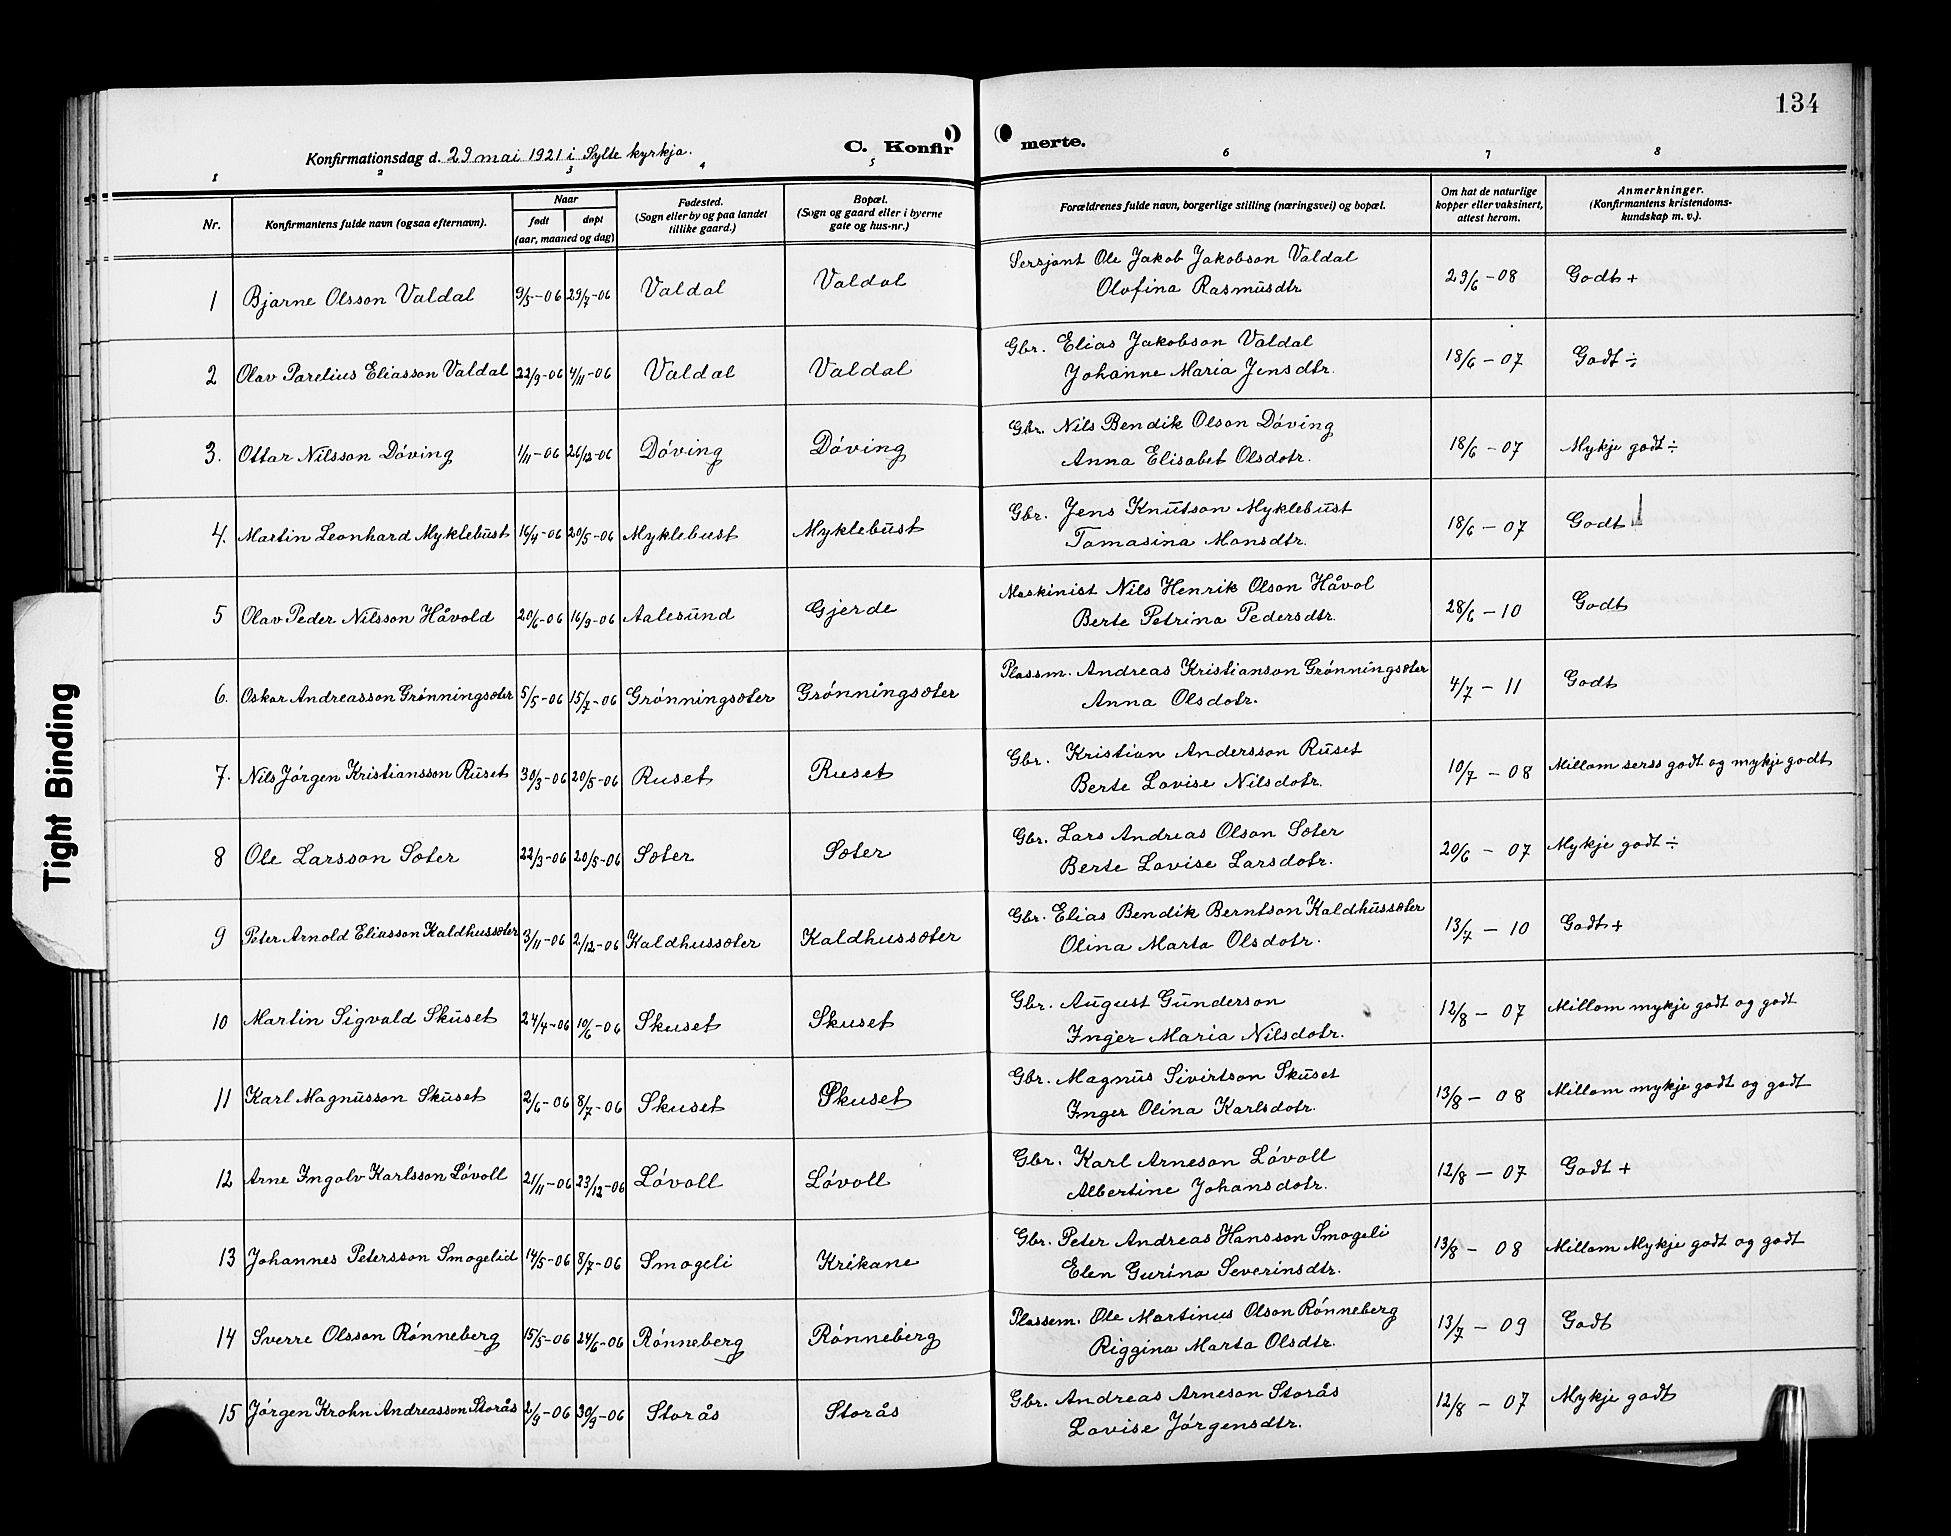 134
Konfirmationsdag d. 29 mai 1921 i Sylte kyrkja.
C. Konfirmerte.
1 2 3 4 5 6 7 8
Nr. Konfirmantens fulde navn (ogsaa efternavn). Naar født døpt (aar, maaned og dag) Fødested. (Sogn eller by og paa landet tillike gaard.) Bopæl. (Sogn og gaard eller i byerne gate og hus-nr.) Forældrenes fulde navn, borgerlige stilling (næringsvei) og bopæl. Om hat de naturlige kopper eller vaksinert, attest herom. Anmerkninger. (Konfirmantens kristendoms-kundskap m. v.).
1 Bjarne Olsson Valdal 9/5-06 29/7-06 Valdal Valdal Sersjant Ole Jakob Jakobson Valdal 29/6-08 Godt +
Olafina Rasmusdtr
2 Olav Parelius Eliasson Valdal 22/9-06 4/11-06 Valdal Valdal Gbr. Elias Jakobson Valdal 18/6-07 Godt ÷
Johanne Maria Jensdtr.
3. Ottar Nilsson Döving 1/11-06 26/12-06 Döving Döving Gbr. Nils Bendik Olson Döving 18/6-07 Mykje godt ÷
Anna Elisabet Olsdotr.
4. Martin Leonhard Myklebust 16/4-06 20/5-06 Myklebust Myklebust Gbr. Jens Knutson Myklebust 18/6-07 Godt
Tomasina Monsdtr.
5 Olav Peder Nilsson Håvold 20/6-06 16/9-06 Aalesund Gjerde Maskinist Nils Henrik Olson Håvol 28/6-10 Godt
Berte Petrina Pedersdtr.
6. Oskar Andreasson Grönningsæter 5/5-06 15/7-06 Grönningsæter Grönningsæter Plassm. Andreas Kristianson Grönningsæter 4/7-11 Godt
Anna Olsdotr.
7. Nils Jörgen Kristiansson Ruset 30/3-06 20/5-06 Ruset Ruset Gbr. Kristian Andersson Ruset 10/7-08 Millom serss godt og mykje godt
Berte Lovise Nilsdotr.
8 Ole Larsson Sæter 22/3-06 20/5-06 Sæter Sæter Gbr. Lars Andreas Olson Sæter 20/6-07 Mykje godt ÷
Berte Lovise Larsdotr.
9 Peter Arnold Eliasson Kaldhussæter 3/11-06 2/12-06 Kaldhussæter Kaldhussæter Gbr. Elias Bendik Berntson Kaldhussæter 13/7-10 Godt +
Olina Marta Olsdotr.
10 Martin Sigvald Skuset 24/4-06 10/6-06 Skuset Skuset Gbr. August Gunderson 12/8-07 Millom mykje godt og godt
Inger Maria Nilsdotr.
11 Karl Magnusson Skuset 2/6-06 8/7-06 Skuset Skuset Gbr. Magnus Sivirtson Skuset 13/8-08 Millom mykje godt og godt
Inger Olina Karlsdotr.
12 Arne Ingolv Karlsson Lövoll 21/11-06 23/12-06 Lövoll Lövoll Gbr. Karl Arneson Lövoll 12/8-07 Godt +
Albertine Johansdotr.
13 Johannes Petersson Smogelid 14/5-06 8/7-06 Smogeli Krikane Gbr. Peter Andreas Hansson Smogeli 13/8-08 Millom Mykje godt og godt
Elen Gurina Severinsdtr.
14 Sverre Olsson Rönneberg 15/5-06 24/6-06 Rönneberg Rönneberg Plassem. Ole Martinus Olson Rönneberg 13/7-09 Godt
Riggina Marta Olsdtr.
15 Jörgen Krohn Andreasson Storås 2/9-06 30/9-06 Storås Storås Gbr. Andreas Arneson Storås 12/8-07 Mykje godt
Lovise Jörgensdtr.
Tight Binding